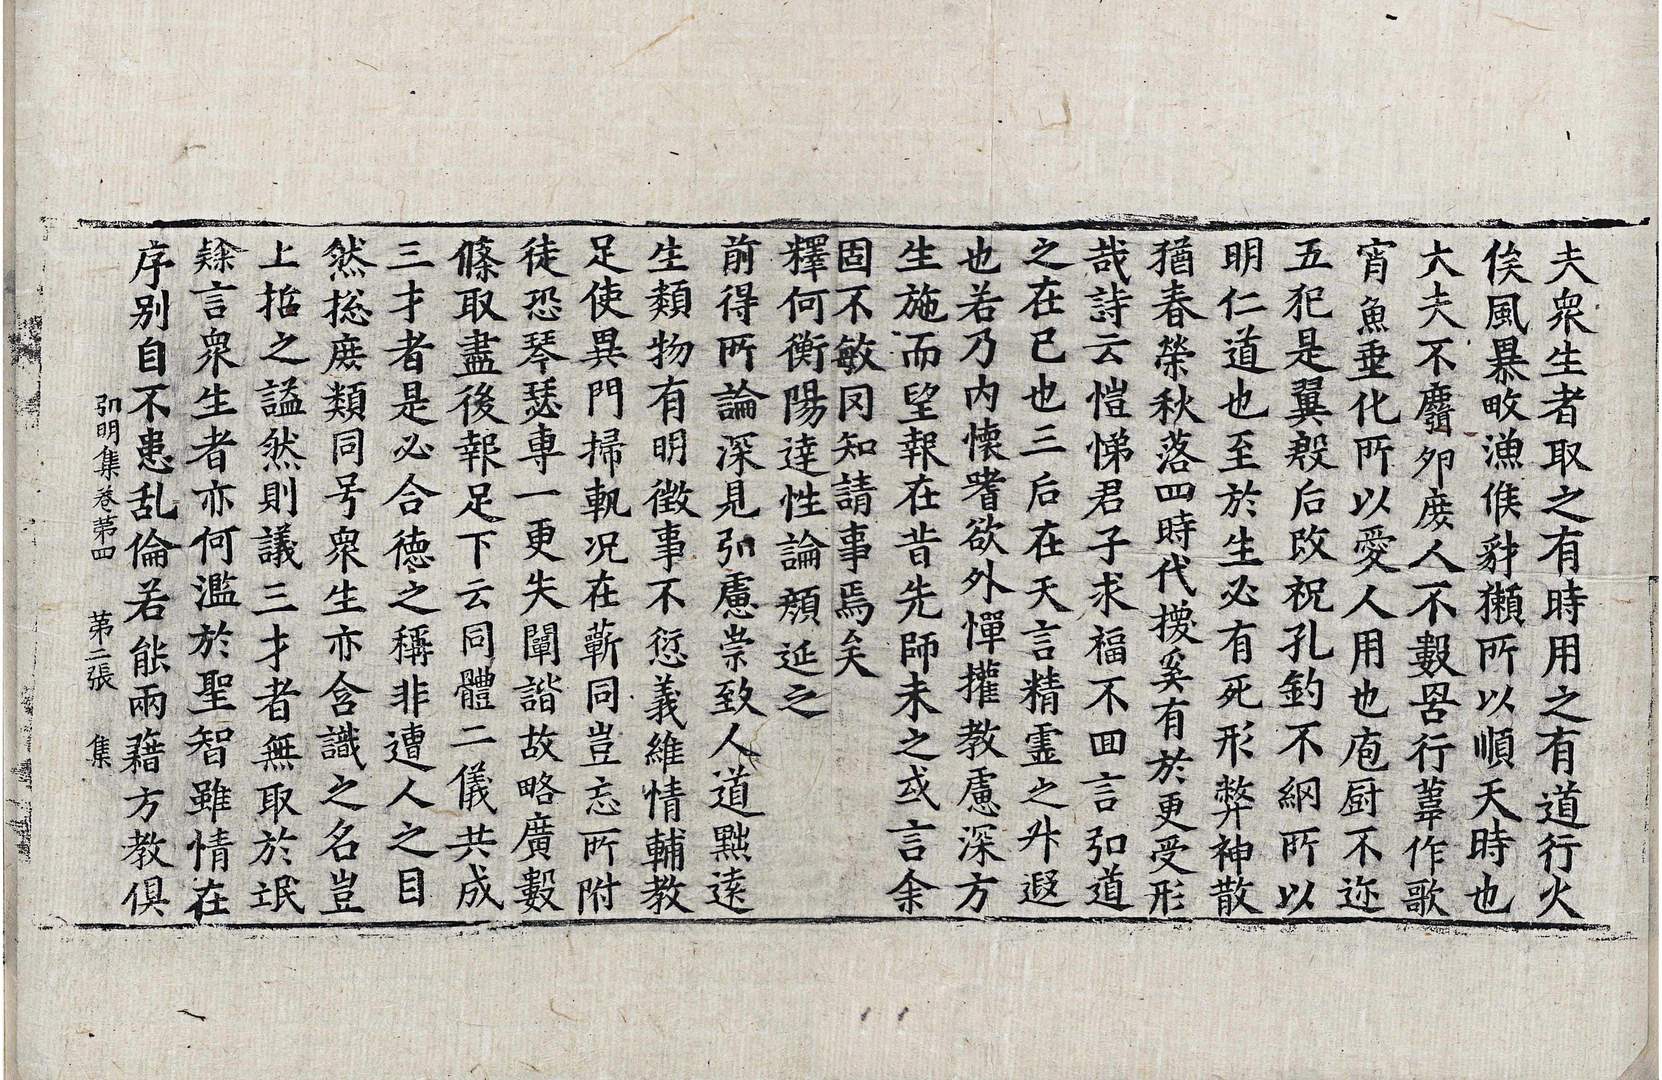 夫衆生者取之有時用之有道行火
俟風暴畋漁候豺獺所以順天時也
大夫不麛夘庻人不數罟行葦作歌
宵魚垂化所以愛人用也庖厨不迩
五犯是翼殷后改祝孔釣不綱所以
明仁道也至於生必有死形弊神散
猶春榮秋落四時代換奚有於更受形
哉詩云愷悌君子求福不回言弘道
之在已也三后在天言精霊之升遐
也若乃内懐嗜欲外憚權教慮深方
生施而望報在昔先師未之或言余
固不敏罔知請事焉矣
釋何衡陽達性論顔延之
前得所論深見弘慮崇致人道黜遠
生類物有明徵事不愆義維情輔教
足使異門掃軌况在蘄同豈忘所附
徒恐琴瑟專一更失闡諧故略廣數
條取盡後報足下云同體二儀共成
三才者是必合德之稱非遭人之目
然揔庻類同号衆生亦含識之名豈
上哲之謚然則議三才者無取於氓
隸言衆生者亦何濫於聖智雖情在
序别自不患乱倫若能兩藉方教俱
弘明集卷第四 第二張 集